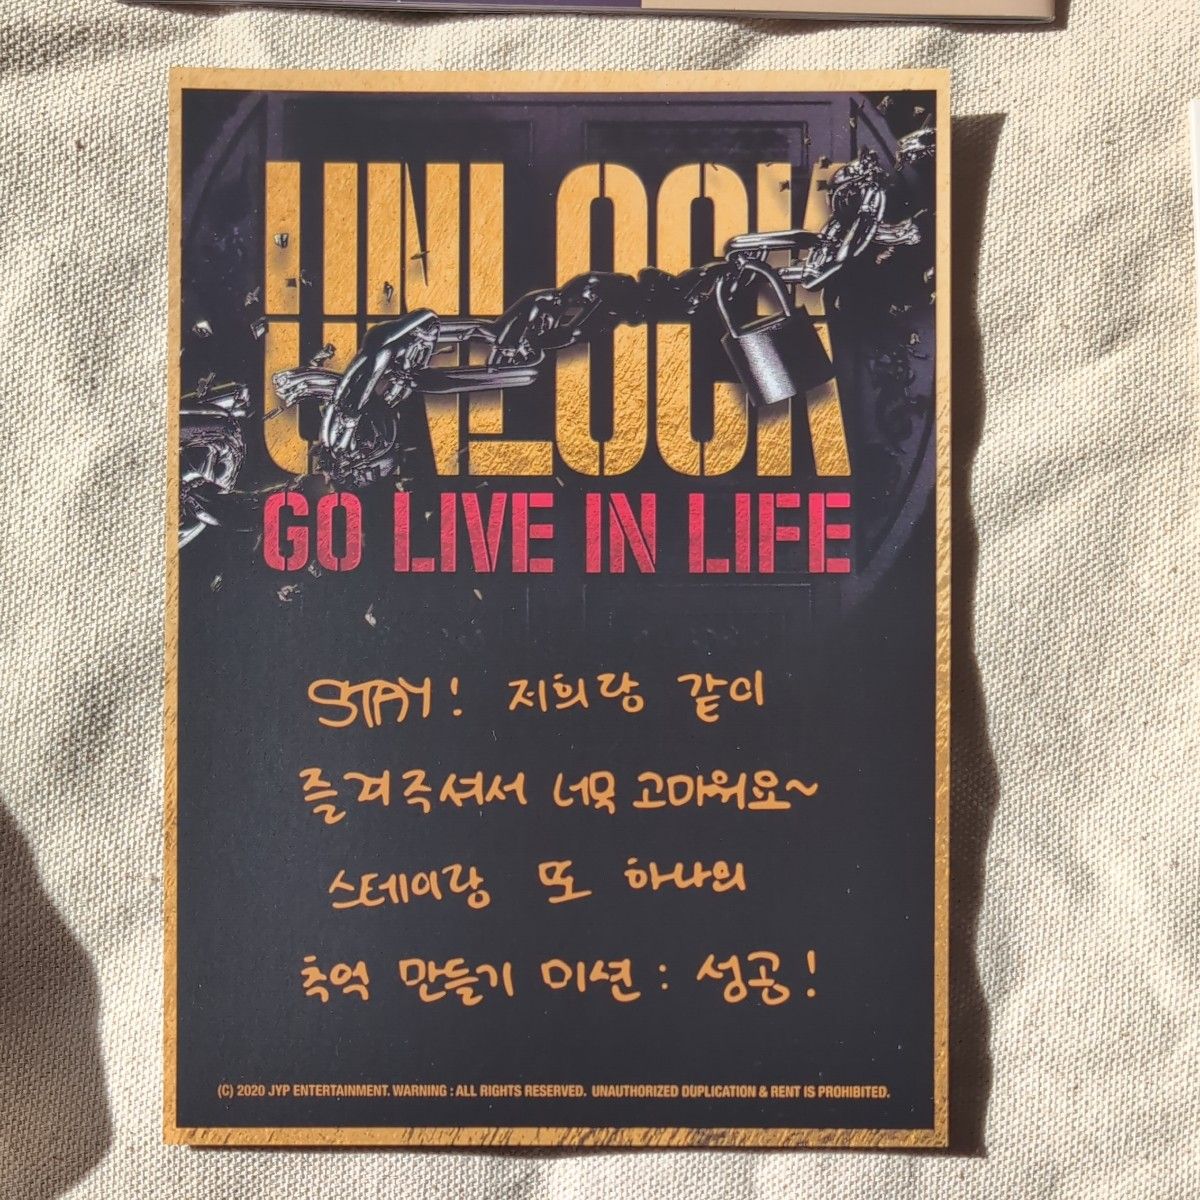 UNLOCK
GO LIVE IN LIFE
STAY! 저희랑 같이
즐겨주셔서 너무 고마워요~
스테이랑 또 하나의
추억 만들기 미션 : 성공!
(C) 2020 JYP ENTERTAINMENT. WARNING : ALL RIGHTS RESERVED. UNAUTHORIZED DUPLICATION & RENT IS PROHIBITED.